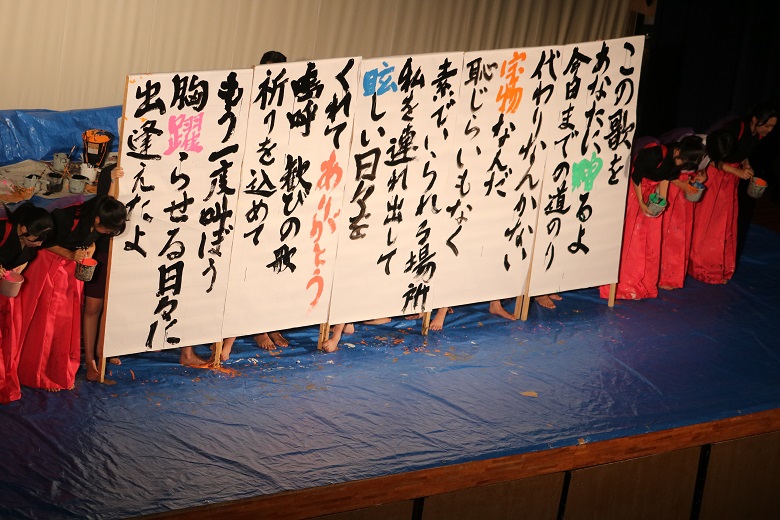 この歌を
あなたに贈るよ
今日までの道のり
代わりなんかない
宝物なんだ
恥じらいもなく
素でいられる場所
私を連れ出して
眩しい日々を
くれて ありがとう
嗚呼 歓びの歌
祈りを込めて
もう一度叫ぼう
胸躍らせる日々に
出逢えたよ